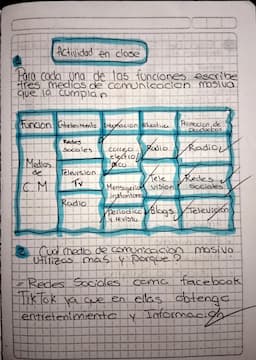 Actividad en clase
1
Para cada una de las funciones escribe
tres medios de comunicacion masiva
que la cumplan
Funcion Entretenimiento Informacion Educativa Promocion de Productos
Medios de C.M
Redes Sociales
Television Tv
Radio
correo electronico
Mensajeria instantanea
Periodico y revista
Radio
Tele vision
Blogs
Radio
Redes Sociales
Television
2 Cual medio de comunicacion masivo
utilizas mas y porque?
Redes Sociales como facebook
TikTok ya que en ellas obtengo
entretenimiento y Informacion